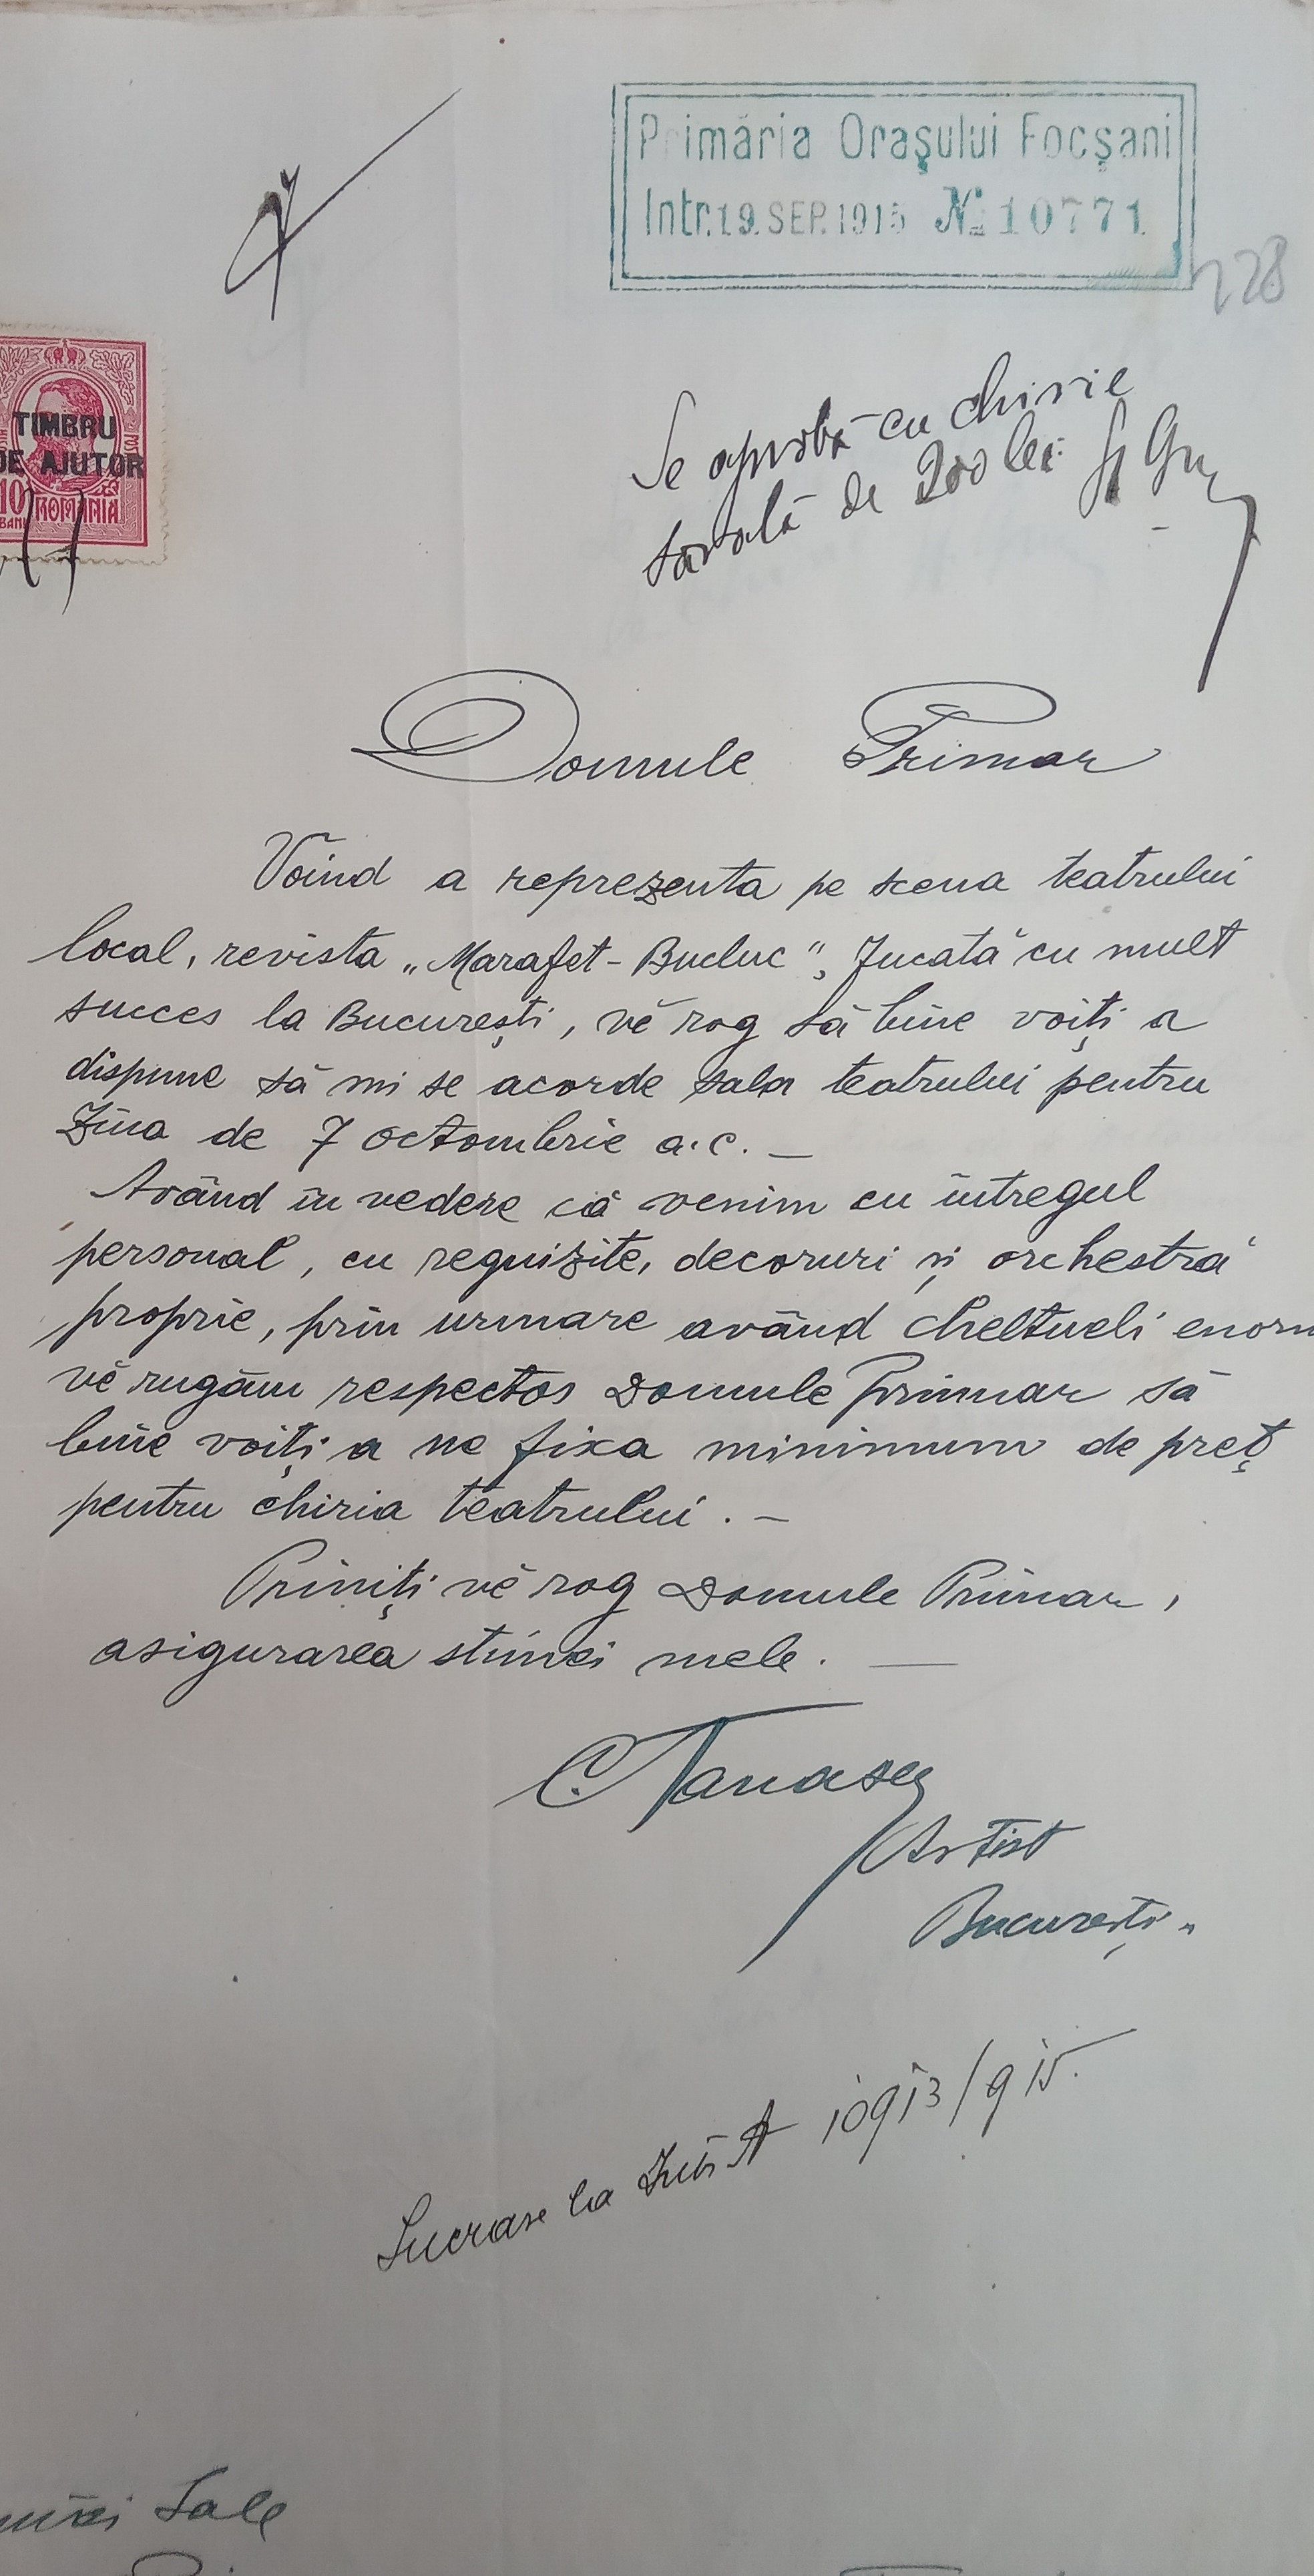 Primăria Orașului Focșani
Intr. 19. SEP. 1915 № 10771
228
TIMBRU
DE AJUTOR
10
BANI
ROMANIA
Se aprobă cu chirie
sarală de 200 lei
Domnule Primar
Voind a reprezenta pe scena teatrului
local, revista „Marafet-Bucluc”, Jucată cu mult
succes la București, vĕ rog să bine voiți a
dispune să mi se acorde sala teatrului pentru
Ziua de 7 octombrie a.c. —
Având în vedere că venim cu întregul
personal, cu reguizite, decoruri și orchestră
proprie, prin urmare având cheltueli enorm
vĕ rugăm respectos Domnule Primar să
bine voiți a ne fixa minimum de preț
pentru chiria teatrului. —
Priniți vĕ rog Domnule Primar,
asigurarea stimei mele. —
C. Tanase
Artist
București
Lucrare la 10913/915.
Sale